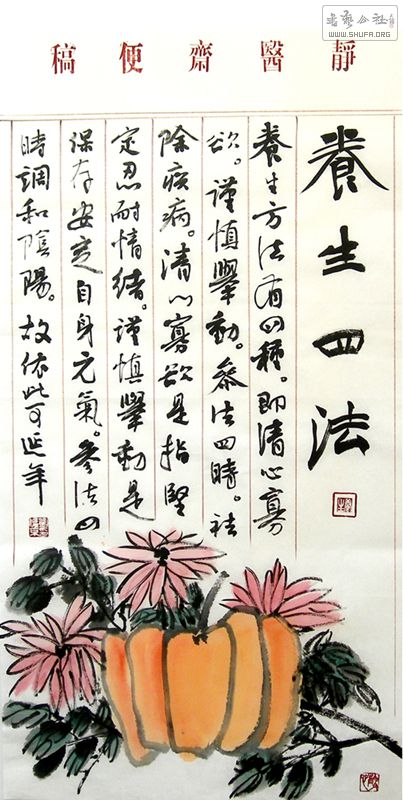 書藝公社
WWW.SHUFA.ORG
靜醫齋便稿
養生四法
養生方法有四種。即清心寡
欲。謹慎舉動。參法四時。祛
除疾病。清心寡欲是指堅
定忍耐情緒。謹慎舉動是
保存安定自身元氣。參法四
時調和陰陽。故依此可延年